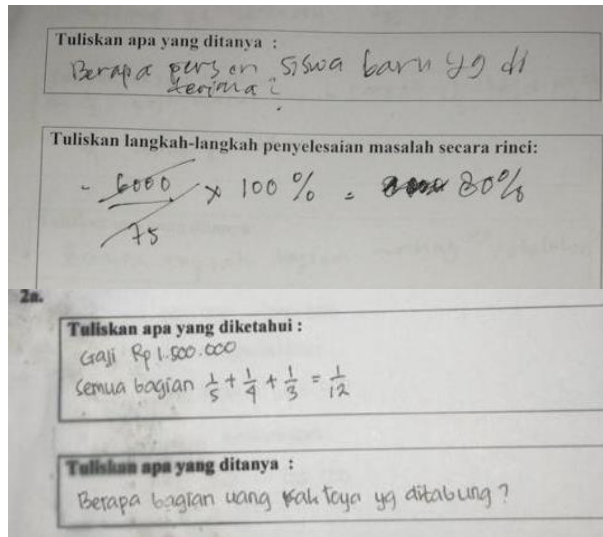 Tuliskan apa yang ditanya :
Berapa persen siswa baru yg di
terima ?
Tuliskan langkah-langkah penyelesaian masalah secara rinci:
- 6000/75 x 100 % = 80%
2a.
Tuliskan apa yang diketahui :
Gaji Rp 1.500.000
Semua bagian 1/5 + 1/4 + 1/3 = 1/12
Tuliskan apa yang ditanya :
Berapa bagian uang Pak Toya yg ditabung ?